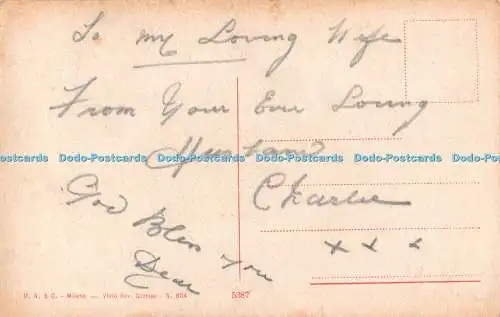 To my Loving Wife
From Your Ever Loving
Husband
Dodo-Postcards Dodo-Postcards Dodo-Postcards Dodo-Postcards Dodo-Postcards
Charlie
God Bless You
Dear
x x x
5387